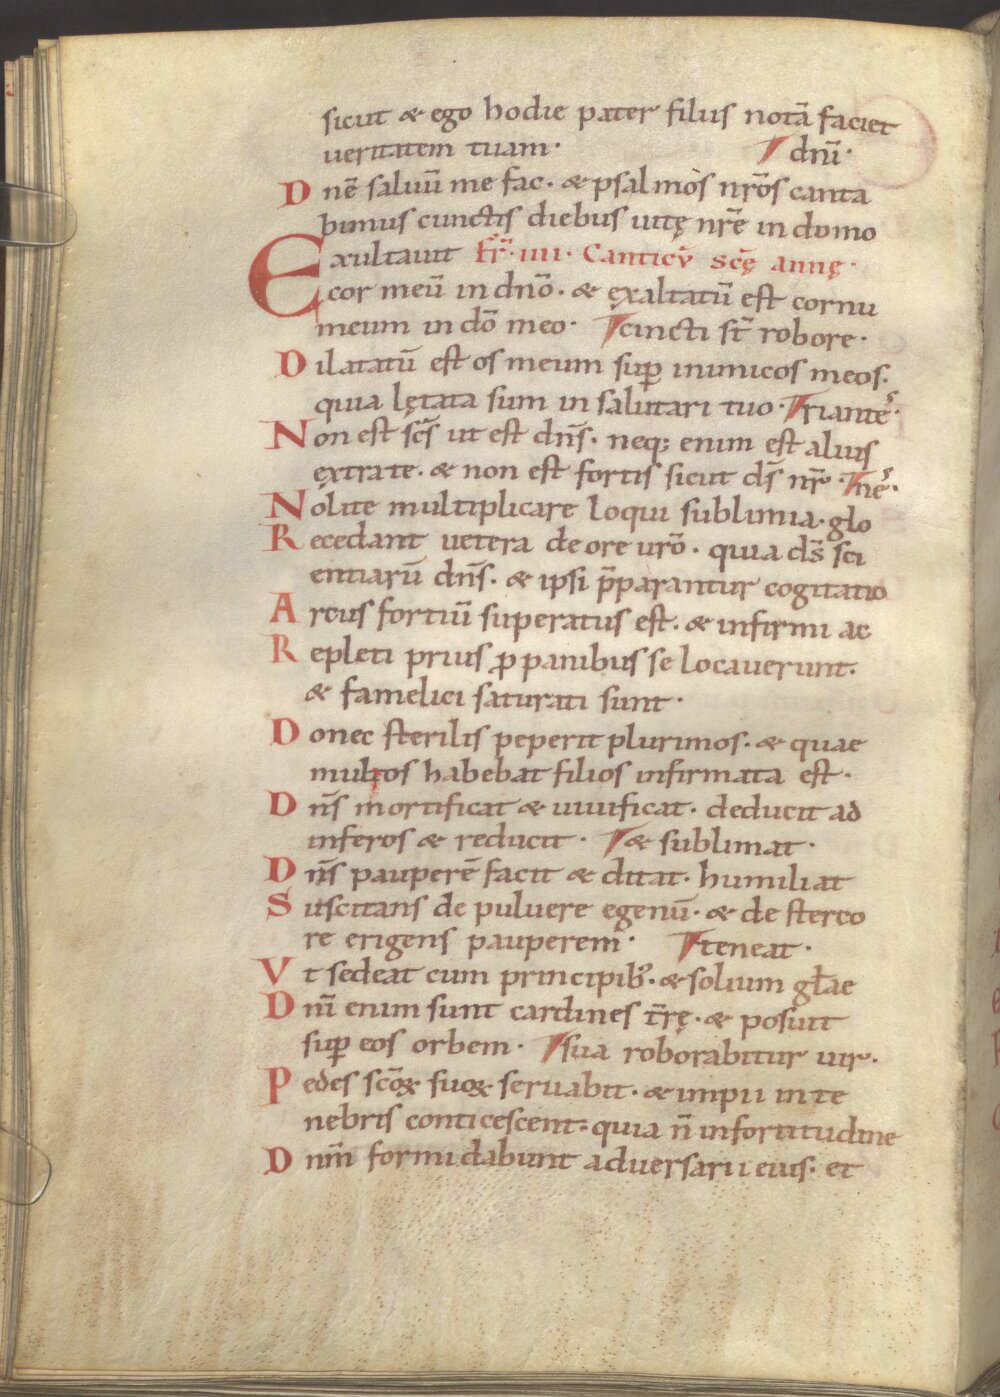 sicut & ego hodie pater filiis notā faciet
ueritatem tuam· dnī·
Dnē saluū me fac· & psalmos nrōs canta
bimus cunctis diebus uitę nrē in domo
Exultauit Fr̄· iiii· Canticv̄ scę̄ annę·
cor meū in dnō· & ęxaltatū est cornu
meum in dō meo· cincti st̄ robore·
Dilatatū est os meum sup̄ inimicos meos·
quia lętata sum in salutari tuo· riantes·
Non est scs̄ ut est dns̄· neq; enim est alius
ęxtra te· & non est fortis sicut ds̄ nr̄· nes·
Nolite multiplicare loqui sublimia· glo
Recedant uetera de ore urō· quia ds̄ sci
entiarū dns̄· & ipsi p̄parantur cogitatio
Arcus fortiū superatus est· & infirmi ac
Repleti prius ꝓ panibus se locauerunt·
& famelici saturati sunt·
Donec sterilis peperit plurimos· & quae
multos habebat filios infirmata est·
Dns̄ mortificat & uiuificat· deducit ad
inferos & reducit· & sublimat·
Dns̄ pauperē facit & ditat· humiliat
Suscitans de puluere egenū· & de sterco
re erigens pauperem· teneat·
Vt sedeat cum principib;· & solium glae
Dnī enim sunt cardines tr̄ę· & posuit
sup̄ eos orbem· sua roborabitur uir·
Pedes scōꝝ suoꝝ seruabit· & impii in te
nebris conticescent· quia n̄ in fortitudine
Dnm̄ formidabunt aduersarii eius· et